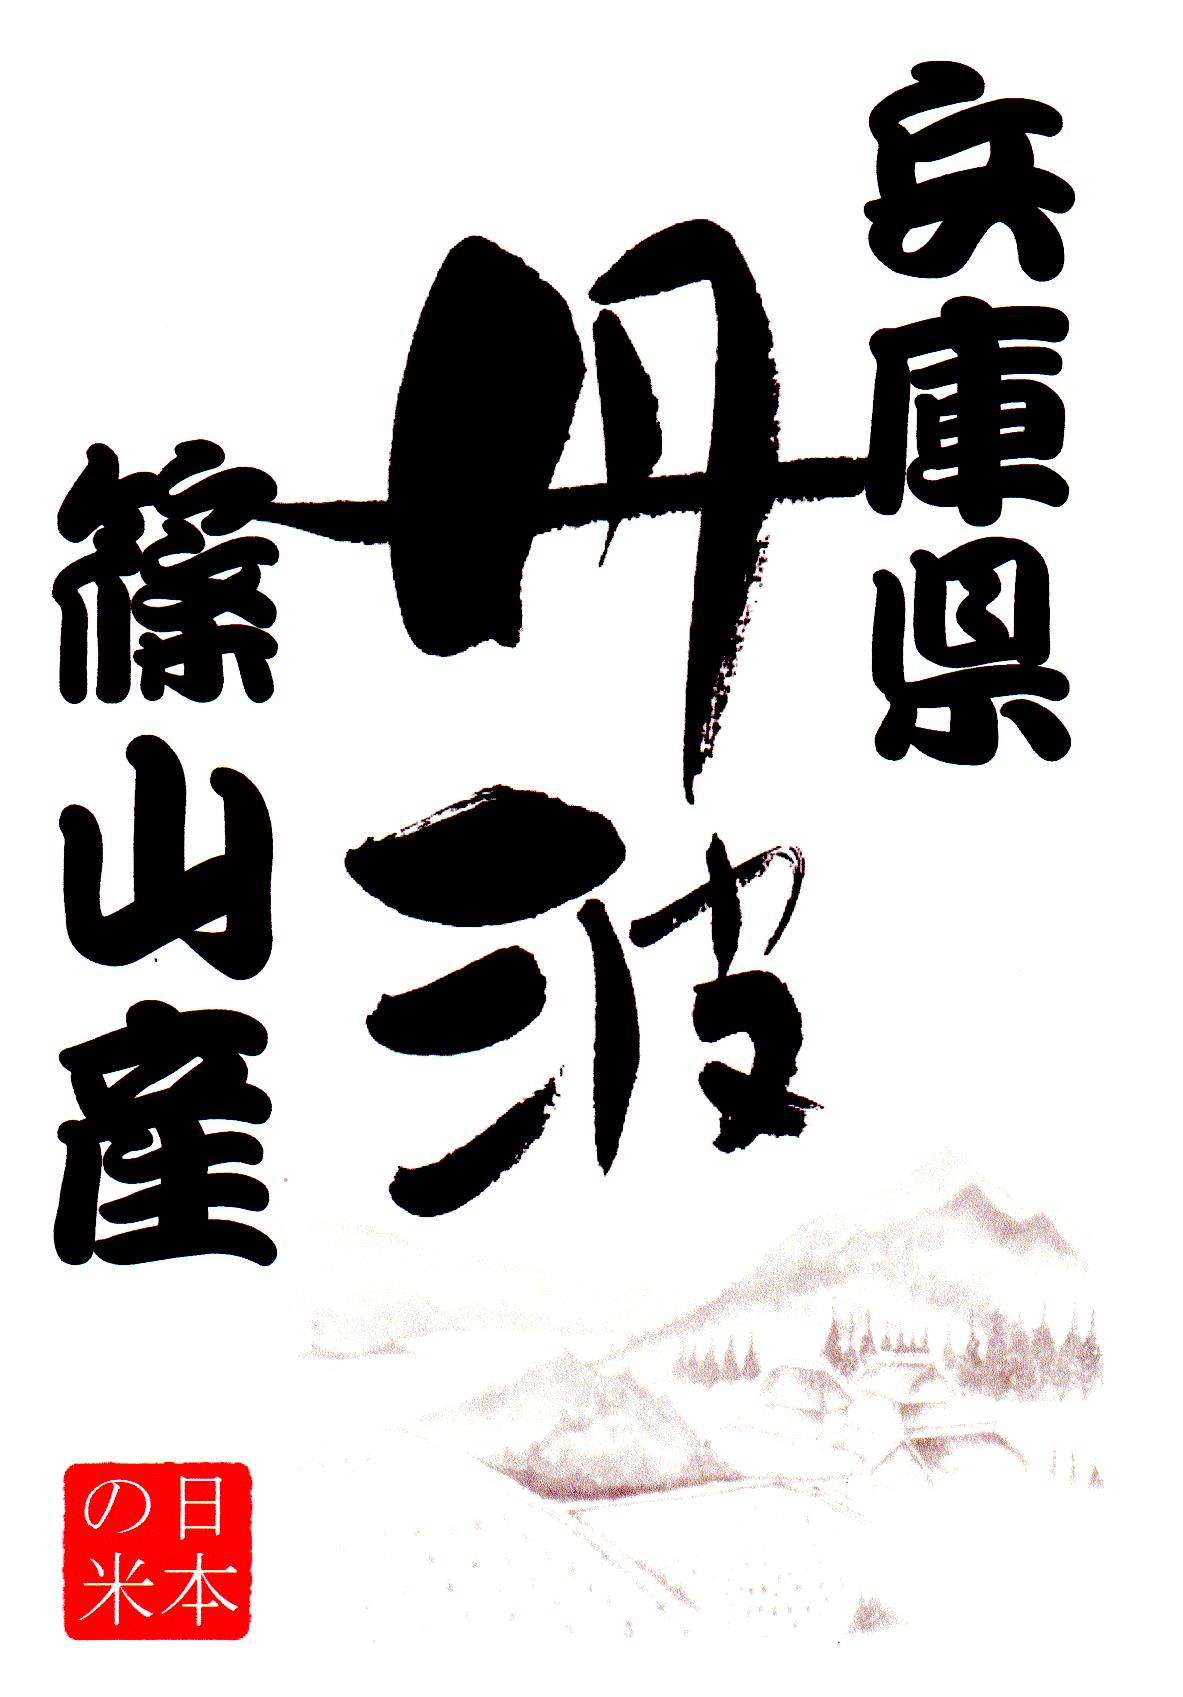 兵庫県
丹波
篠山産
日本
の米